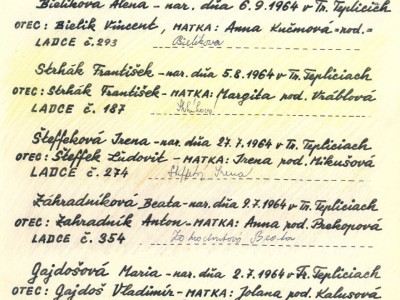 Bieliková Alena - nar. dňa 6.9.1964 v Tr. Tepliciach
OTEC: Bielik Vincent, MATKA: Anna Kučmová =nod.=
LADCE č.293 Bielikova
Strhák František - nar. dňa 5.8.1964 v Tr. Tepliciach
OTEC: Strhák František - MATKA: Margita rod. Vráblová
LADCE č. 187
Šteffeková Irena - nar. dňa 27.7.1964 v Tr. Tepliciach
OTEC: Šteffek Ľudovit - MATKA: Irena rod. Mikušová
LADCE č. 274 Irena
Záhradníková Beata - nar. dňa 9.7.1964 v Tr. Tepliciach
OTEC: Zahradník Anton - MATKA: Anna rod. Prekopová
LADCE č. 354 Beata
Gajdošová Maria - nar. dňa 2.7.1964 v Tr. Tepliciach
OTEC: Gajdoš Vladimír - MATKA: Jolana rod. Kalusová